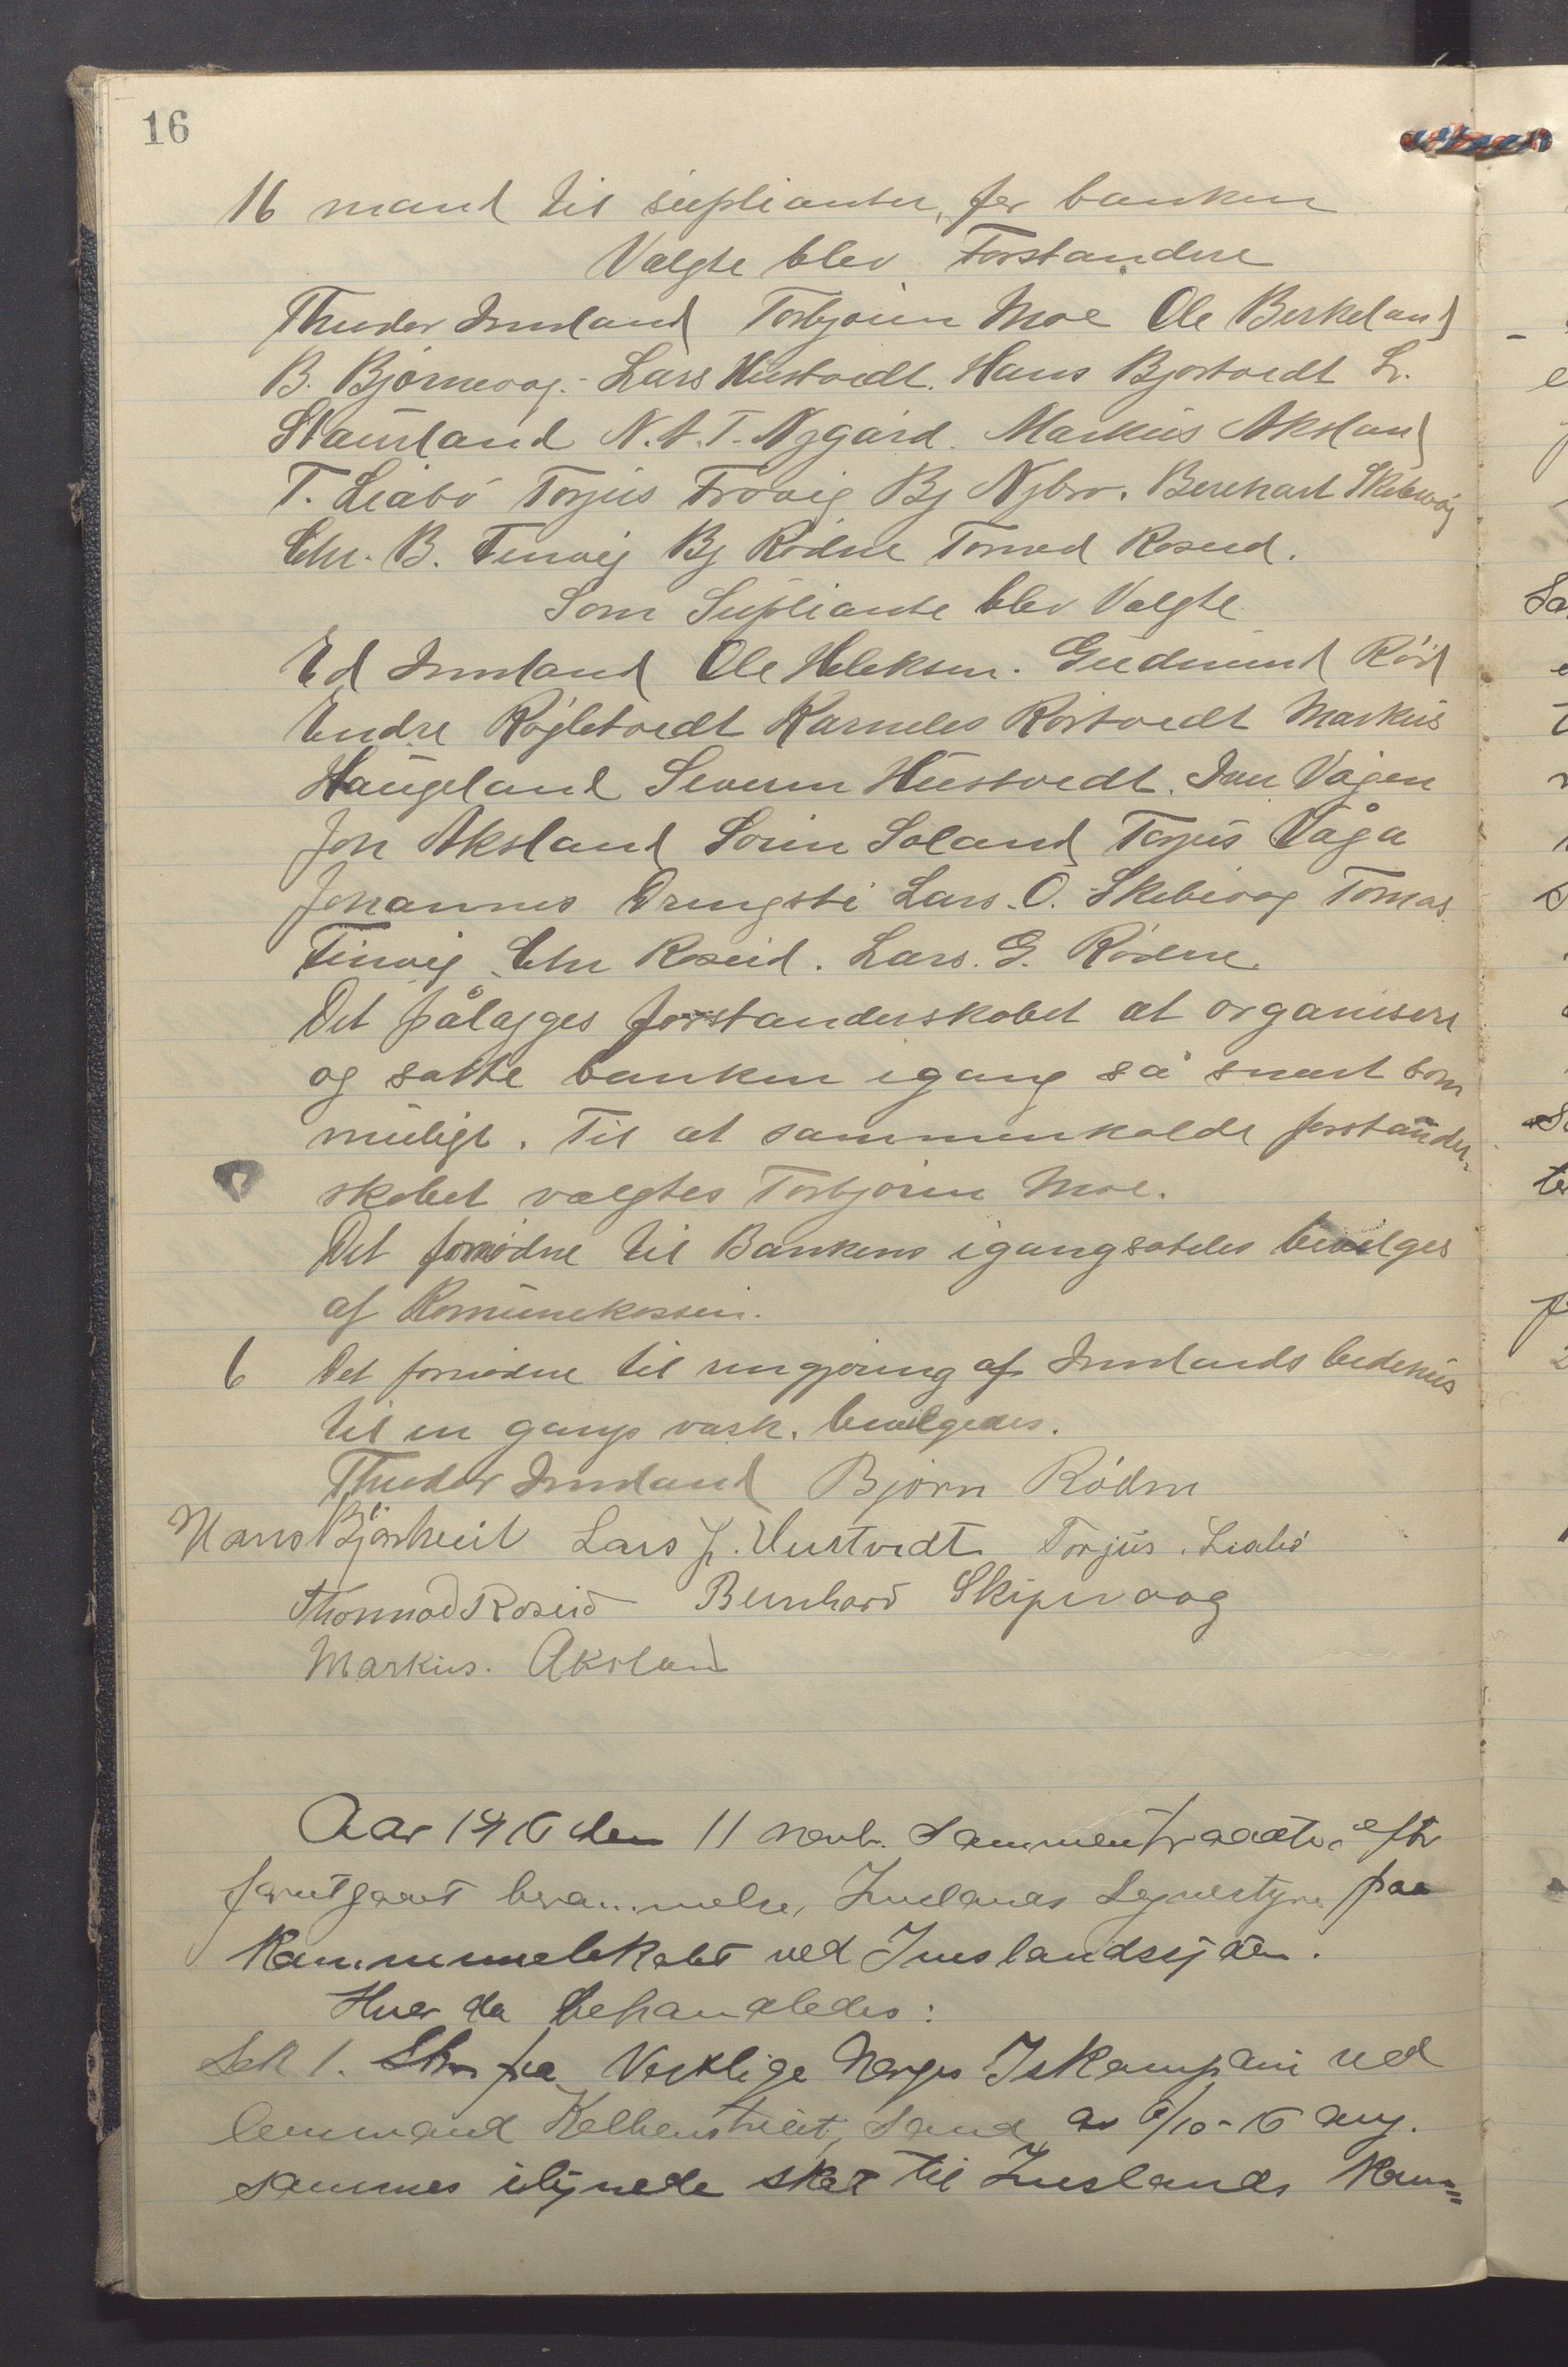 16
16 mand til suplianter, for banken
Valgte blev Forstandere
Thudor Imsland Torbjørn Moe Ole Berkeland
B. Bjørnevog. Lars Hustvedt. Hans Bjortvedt L.
Stamland N. A. T. Nygård. Markus Aksland
T. Liabø Torjus Frøvig Bj Nybro. Bernhart Skibevåg
Chr. B. Finvig Bj Rødne Tormod Roseid.
Som Supliante blev Valgte
Ed Imsland Ole Heleksen. Gudmund Rød
Endre Røgletvedt Karneles Rørtvedt Markus
Haugeland Severin Hustvedt. Iver Vågen
Jon Aksland Sørin Soland Torjus Våga
Johannes Drengsti Lars. O. Skibevog Tomas
Finvig Chr Roseid. Lars. G. Rødne.
Det pålægges forstanderskobet at organisere
og sætte banken igang så snart som
muligt. Til at sammenkalde forstander-
skobet vælgtes Torbjørn Moe.
Det fornødne til Bankens igangsættelse bevilges
af Komunekassen.
6 Det fornødne til rengjøring af Imslands bedehus
til en gangs vask. bevilgedes.
Thudor Imsland Bjørn Rødne
Hans Bjortveit Lars J. Hustvedt Torjus. Liabø
Thormod Roseid Bernhard Skipevaag
Markus. Aksland
Aar 1916 den 11 novb. sammentraadte efter
forutgaaet berammelse, Imslands Lignestyre paa
Kommunelokalet ved Imslandssjøen.
Hvor da behandledes:
Sak 1. Skr. fra Vestlige Norges Iskompani ved
lensmand Kolbenstveit, Sand as 6/10-16 ang.
sammes ilignede skat til Imslands Kom=